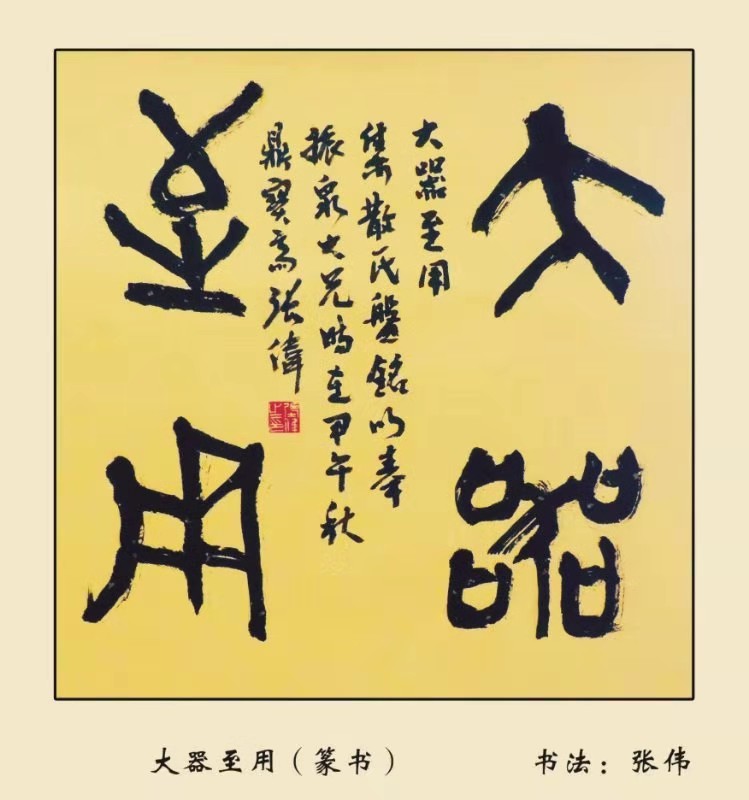 大器
至用
大器至用
集散氏盤銘以奉
振泉大兄時在甲午秋
鼎寶斋張偉
大器至用（篆书）
书法：张伟